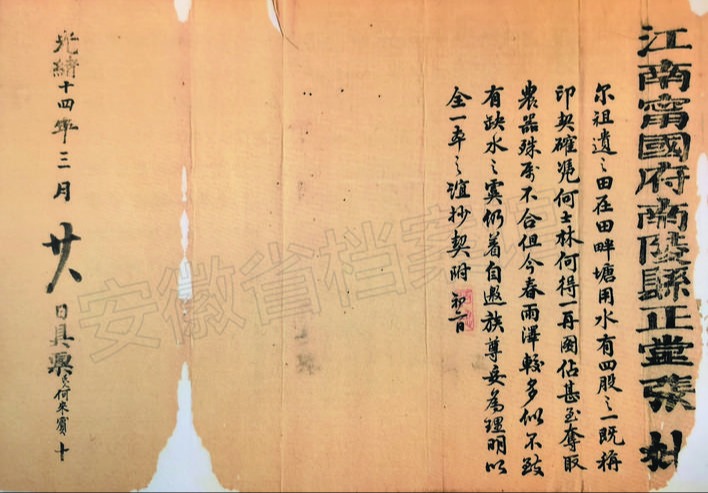 江南甯國府南陵縣正堂張 批
尔祖遗之田在田畔塘用水有四股之一既称
印契確憑何士林何得一再圖佔甚至奪取
農器殊属不合但今春雨澤較多似不致
有缺水之虞仍着自邀族尊妥為理明以
全一本之誼抄契附
初二日
光緒十四年三月廿八日具禀民何来賓 十
安徽省档案馆